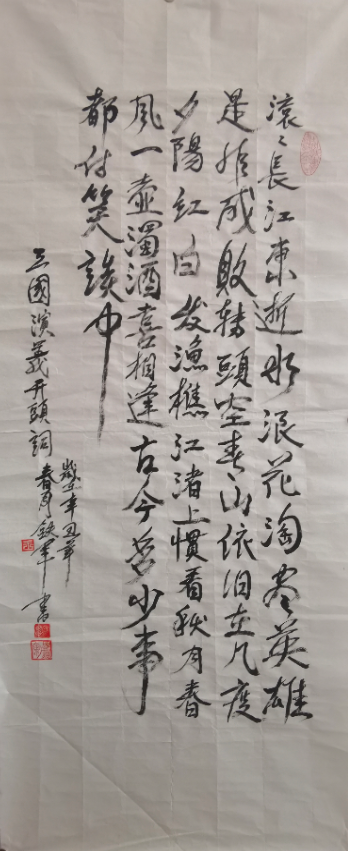 滚〻長江東逝水浪花淘尽英雄
是非成敗轉頭空青山依旧在几度
夕陽红白发渔樵江渚上慣看秋月春
風一壶濁酒喜相逢古今多少事
都付笑談中
三國演義开頭詞
歲辛丑年
春月鉄軍書